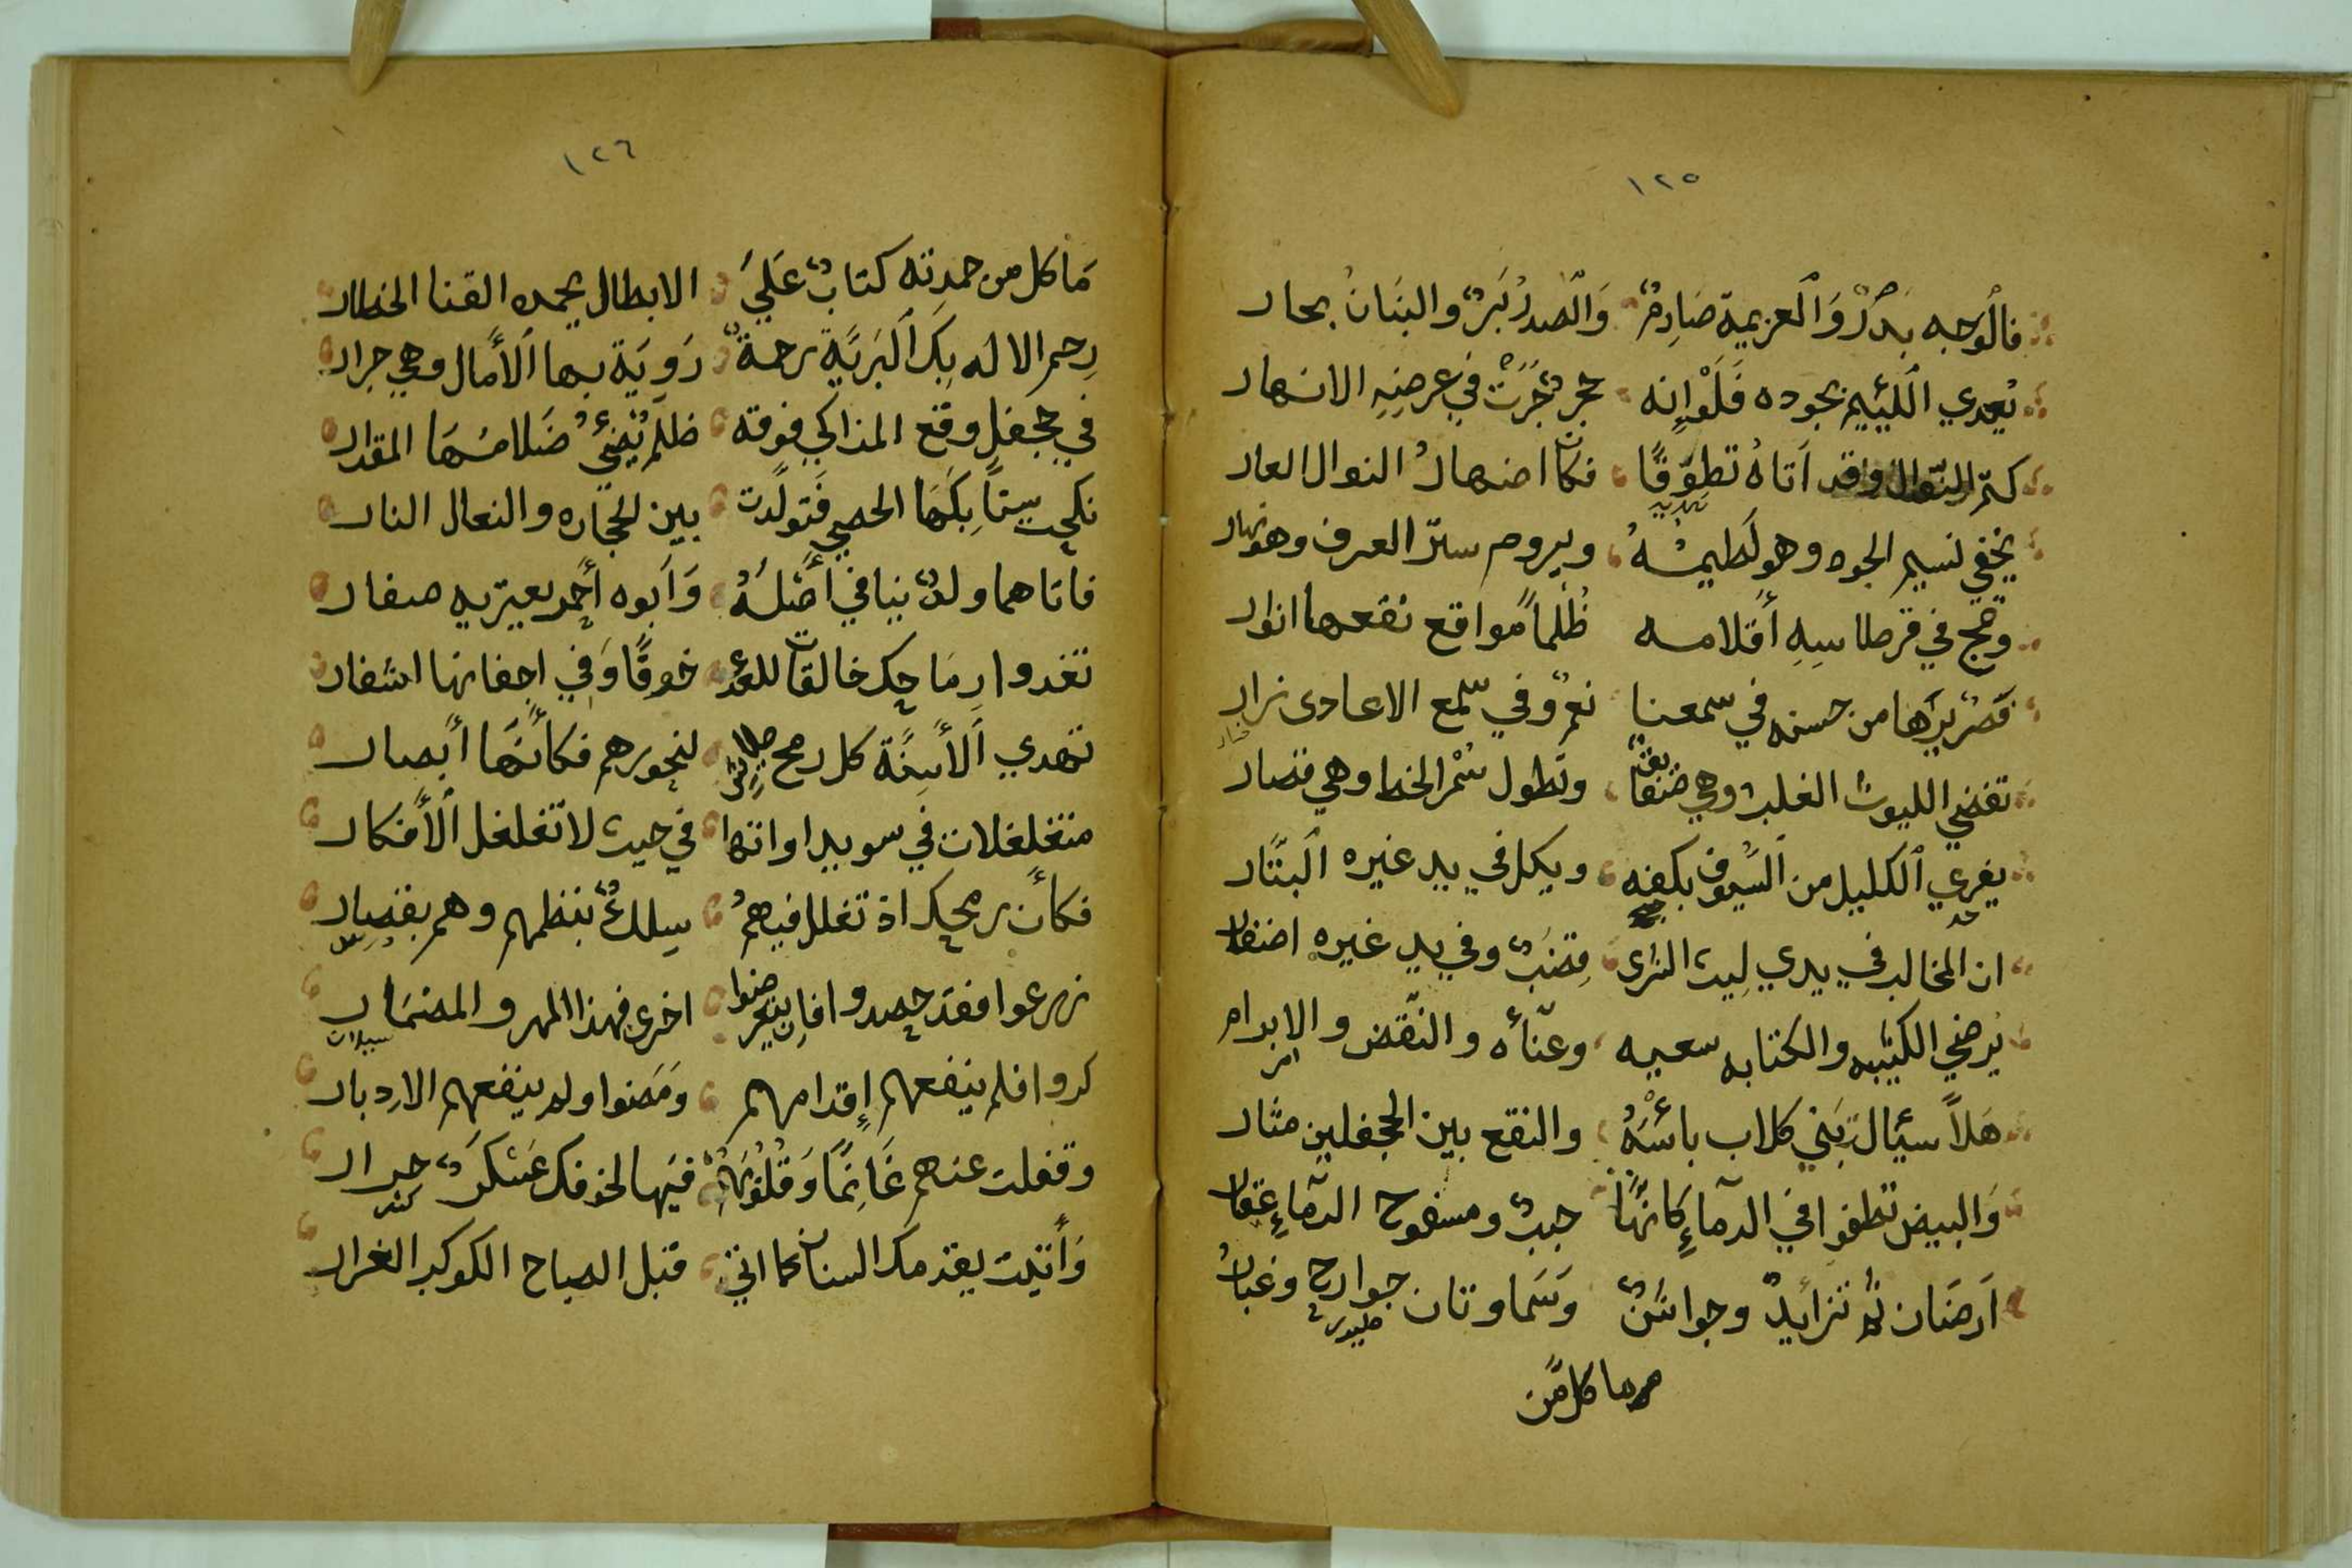 ١٢٥
فالْوَجه بَدْرٌ وَالعزيمة صَارِمٌ وَالصَدرُ بَرٌّ والبنَانُ بحار
يُعدي اللَئِيم بجوده فَلَوْإنه حجر جَرَتْ في عرضِهِ الانهار
كتم النّوال وقد اَتاهُ تطوّقًا فكان اضهارُ النوال العار
يخفي نسيم الجود وهو لَطيمةُ ويروم سترّ العرف وهو نهار
وتمج في قرطاسِهِ أقلامه ظُلماً مواقع نقعها انوار
فَصريرَها من حسنه في سمعنا نغمٌ وفي سمع الاعادى نزار
تفضي الليوث الغلب وهي ضئالا وتطول سُمْر الخط وهي قصار
يفري الكليل من السّيوف بكفه ويكل في يد غيره البتّار
ان المخالب في يدي لِيث الشرى قضبٌ وفي يد غيره اضفار
يُرضي الكتيبه والكتابه سعيه وعنّاه والنّقض والابرام
هَلاَّ سيئالت بَني كلاب باسَهُ والنقع بين الجحفلين مثار
وَالبيض تطفوا في الدمآءِ كَانهّا حبب ومسفوح الدمَآءِ عقار
اَرضَان ثم تزايدٌ وجواشنٌ وَسَماوتان جوارح وغبارُ
ما كل من
١٢٦
مَا كل من حمدته كتابٌ عَليَ الابطال يحمده القنا الخطار
رِحم الاله بِكَ البَريَّة رحمةً رَوِيَة بها الأمال وهي حِرار
في جحفلٍ وقع المذاكي فوقه ظلم يُضئُ ضَلامهَا المقدار
نكحت سِنَاِبكهَا الحصى فَتولدت بين الحجاره والنعال النار
فاتاهما ولدٌ ينافي أصْلهُ وَاَبوه أحمد يعتريه صفار
تغدوا رِمَاحك خالقات للعدَ خوفًا وَفِي اجفانها اشفار
تهدي الأسِنَّة كل رمح لنحورهم فكأنهَّا أبصار
متغلغلات في سويداواتها في حيث لا تغلغل الأفكار
فكأن رمحك اذ تغلل فيهمُ سِلكٌ بنظمهم وهم
زرعوا فقد حصدوا فان اخرى فهذا المهر والمضمَار
كروا فلم ينفعهم إقدامهم وَمَضوا ولم ينفعهم الادبار
وقفلت عنهم غَانِمًا وَقُلُوبَهُمْ فيَها لخوفك عَسْكَرٌ جرار
وَأتيت يقدمك السنان كما اتى قبل الصباح الكوكب الغرار